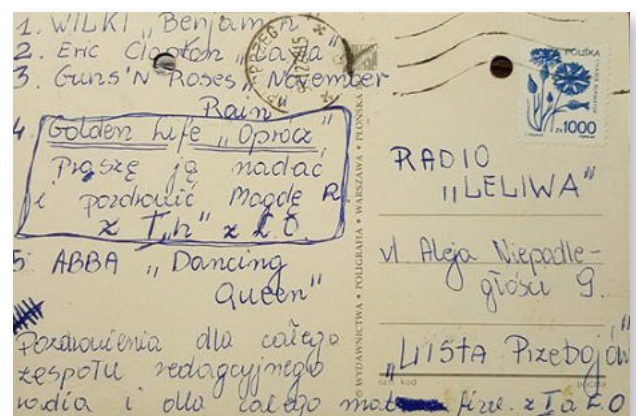 1. WILKI „Benjamin"
2. Eric Clapton „Layla"
3. Guns'N Roses „November
Rain"
4. Golden Life „Oprócz"
Proszę ją nadać
i pozdrowić Magdę R.
z I „h" z L.O.
5. ABBA „Dancing
Queen"
Pozdrowienia dla całego
zespołu redagcyjnego
radia i dla całego
z I a L.O
WYDAWNICTWA • POLIGRAFIA • WARSZAWA • PŁOŃSKA
POLSKA
zł 1000
RADIO
„LELIWA"
ul. Aleja Niepodle-
głości 9.
„LIISTA Przebojów"
kod
poczta